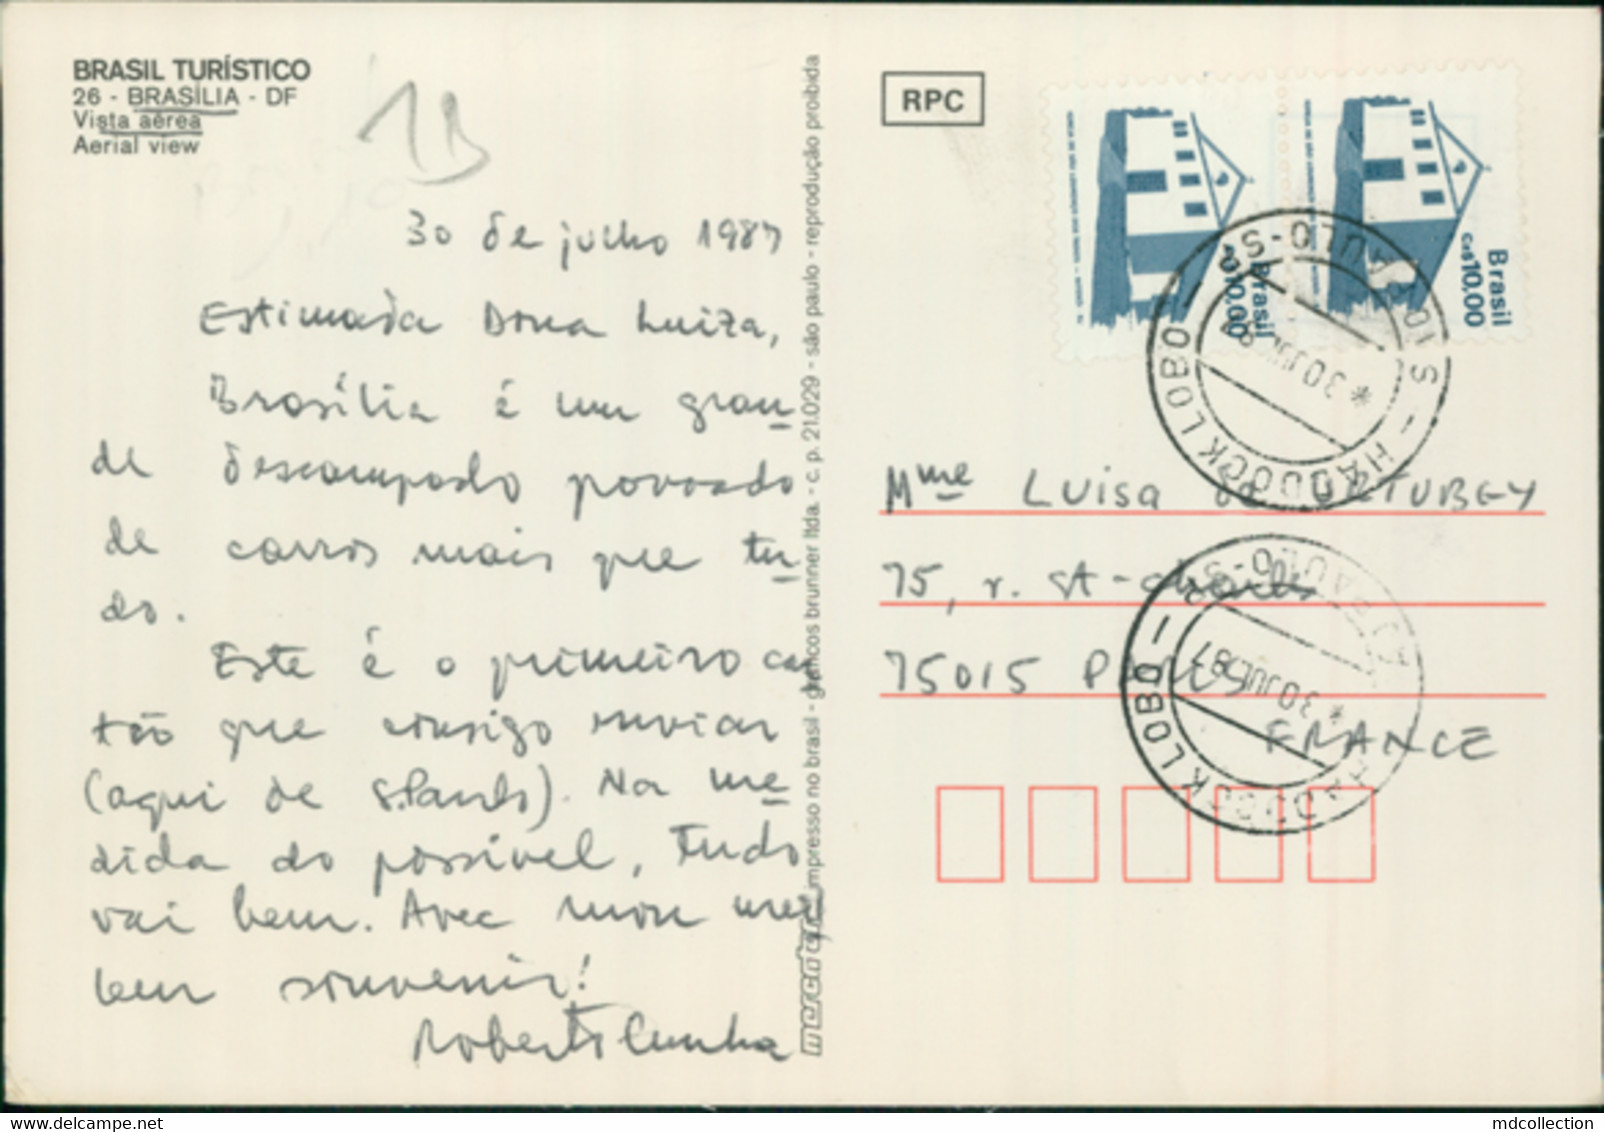 BRASIL TURÍSTICO
26 - BRASÍLIA - DF
Vista aérea
Aerial view
30 de julho 1987
Estimada Dona Luiza,
Brasília é um gran-
de descampado povoado
de carros mais que tu-
do.
Este é o primeiro car
tão que consigo enviar
(aqui de S. Paulo). Na me-
dida do possível, tudo
vai bem. Avec mon mei
leur souvenir!
Roberto Cunha
mercator impresso no brasil - gráficos brunner ltda. - c. p. 21.029 - são paulo - reprodução proibida
RPC
Brasil
Cz$10,00
Brasil
10,00
HADDOCK LOBO
PAULO - S
* 30 JUL
HADDOCK LOBO
PAULO - S
* 30 JUL 87
Mme LUISA DE ORTUBEY
75, r. St-Charles
75015 PARIS
FRANCE
mdcollection